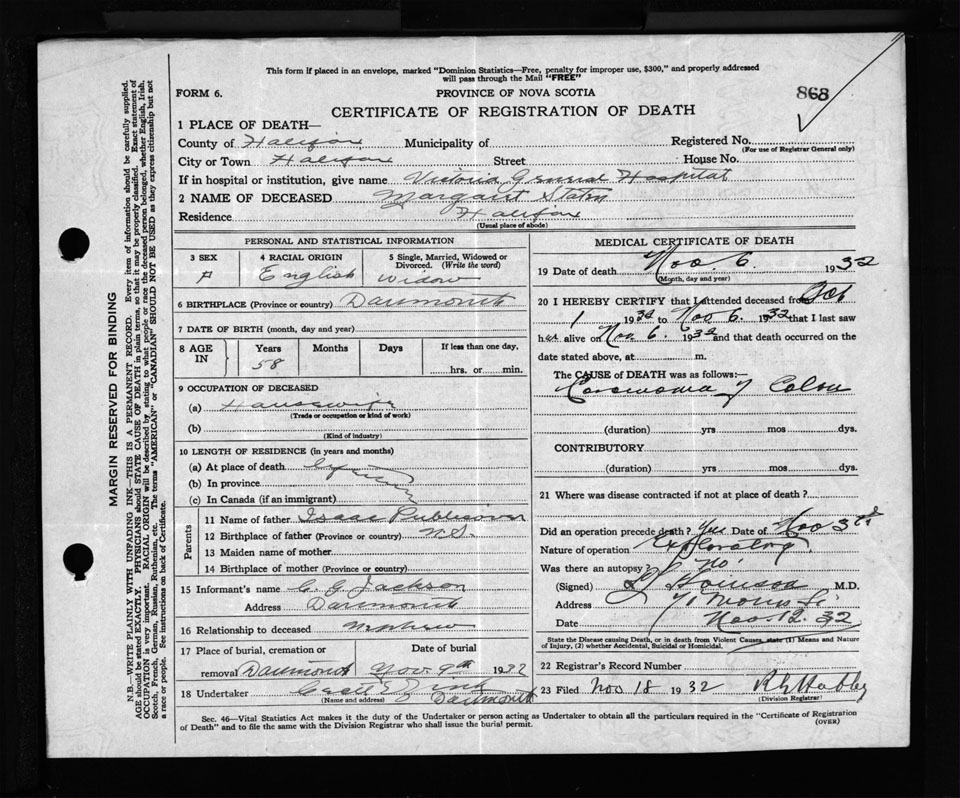 This form if placed in an envelope, marked "Dominion Statistics—Free, penalty for improper use, $300," and properly addressed
will pass through the Mail "FREE"
FORM 6.
PROVINCE OF NOVA SCOTIA
868
CERTIFICATE OF REGISTRATION OF DEATH
1 PLACE OF DEATH—
County of Halifax Municipality of Registered No.
(For use of Registrar General only)
City or Town Halifax Street House No.
If in hospital or institution, give name Victoria General Hospital
2 NAME OF DECEASED Margaret
Residence Halifax
(Usual place of abode)
PERSONAL AND STATISTICAL INFORMATION
3 SEX 4 RACIAL ORIGIN 5 Single, Married, Widowed or
Divorced. (Write the word)
F English Widow
6 BIRTHPLACE (Province or country) Dartmouth
7 DATE OF BIRTH (month, day and year)
8 AGE IN Years Months Days If less than one day,
58 hrs. or min.
9 OCCUPATION OF DECEASED
(a) Housewife
(Trade or occupation or kind of work)
(b)
(Kind of industry)
10 LENGTH OF RESIDENCE (in years and months)
(a) At place of death
(b) In province
(c) In Canada (if an immigrant)
Parents
11 Name of father Isaac Publicover
12 Birthplace of father (Province or country) N.S.
13 Maiden name of mother
14 Birthplace of mother (Province or country)
15 Informant's name C. G. Jackson
Address Dartmouth
16 Relationship to deceased nephew
17 Place of burial, cremation or Date of burial
removal Dartmouth Nov 9th 1932
18 Undertaker Dartmouth
(Name and address)
MEDICAL CERTIFICATE OF DEATH
19 Date of death Nov. 6. 1932
(Month, day and year)
20 I HEREBY CERTIFY that I attended deceased from Oct
1 1932 to Nov 6. 1932 that I last saw
her alive on Nov 6. 1932 and that death occurred on the
date stated above, at m.
The CAUSE of DEATH was as follows:—
Carcinoma of Colon
(duration) yrs mos dys.
CONTRIBUTORY
(duration) yrs mos dys.
21 Where was disease contracted if not at place of death?
Did an operation precede death? Yes Date of Nov 3rd
Nature of operation Exploratory
Was there an autopsy? no.
(Signed) M.D.
Address 71 Morris St
Date Nov. 12. 32
State the Disease causing Death, or in death from Violent Causes, state (1) Means and Nature
of Injury, (2) whether Accidental, Suicidal or Homicidal.
22 Registrar's Record Number
23 Filed Nov 18 1932
(Division Registrar)
Sec. 46—Vital Statistics Act makes it the duty of the Undertaker or person acting as Undertaker to obtain all the particulars required in the "Certificate of Registration
of Death" and to file the same with the Division Registrar who shall issue the burial permit.
(OVER)
MARGIN RESERVED FOR BINDING
N.B.—WRITE PLAINLY WITH UNFADING INK—THIS IS A PERMANENT RECORD. Every item of information should be carefully supplied.
AGE should be stated EXACTLY. PHYSICIANS should STATE CAUSE OF DEATH in plain terms, so that it may be properly classified. Exact statement of
OCCUPATION is very important. RACIAL ORIGIN will be described by stating to what people or race the deceased person belonged, whether English, Irish,
Scotch, French, German, Russian, Ruthenian, etc. The terms "AMERICAN" or "CANADIAN" SHOULD NOT BE USED as they express citizenship but not
a race or people. See instructions on back of Certificate.